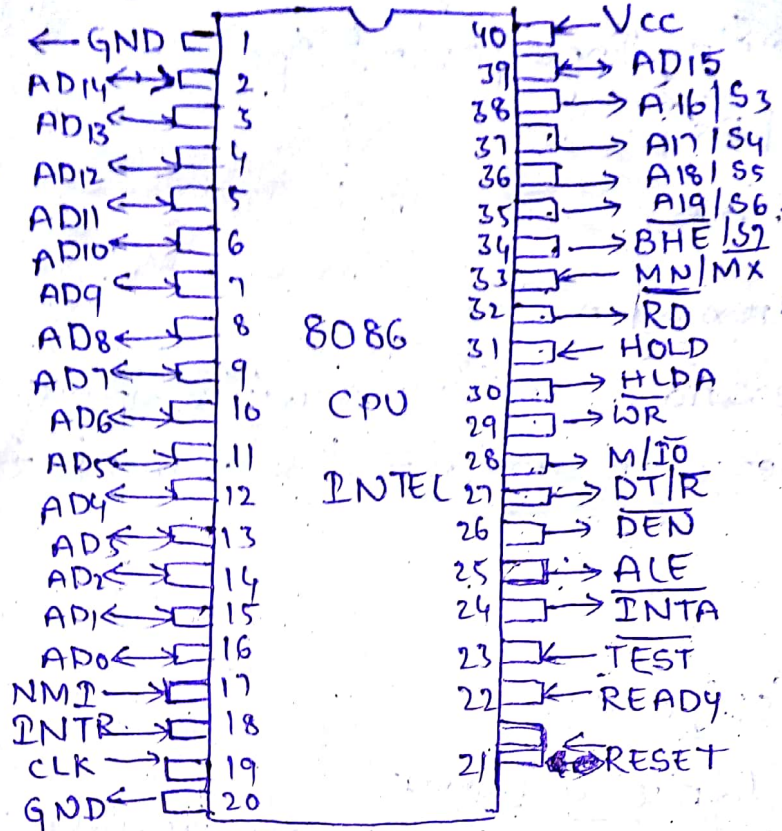 GND 1
AD14 2
AD13 3
AD12 4
AD11 5
AD10 6
AD9 7
AD8 8
AD7 9
AD6 10
AD5 11
AD4 12
AD3 13
AD2 14
AD1 15
AD0 16
NMI 17
INTR 18
CLK 19
GND 20
8086
CPU
INTEL
40 Vcc
39 AD15
38 A16/S3
37 A17/S4
36 A18/S5
35 A19/S6
34 BHE/S7
33 MN/MX
32 RD
31 HOLD
30 HLDA
29 WR
28 M/IO
27 DT/R
26 DEN
25 ALE
24 INTA
23 TEST
22 READY
21 RESET